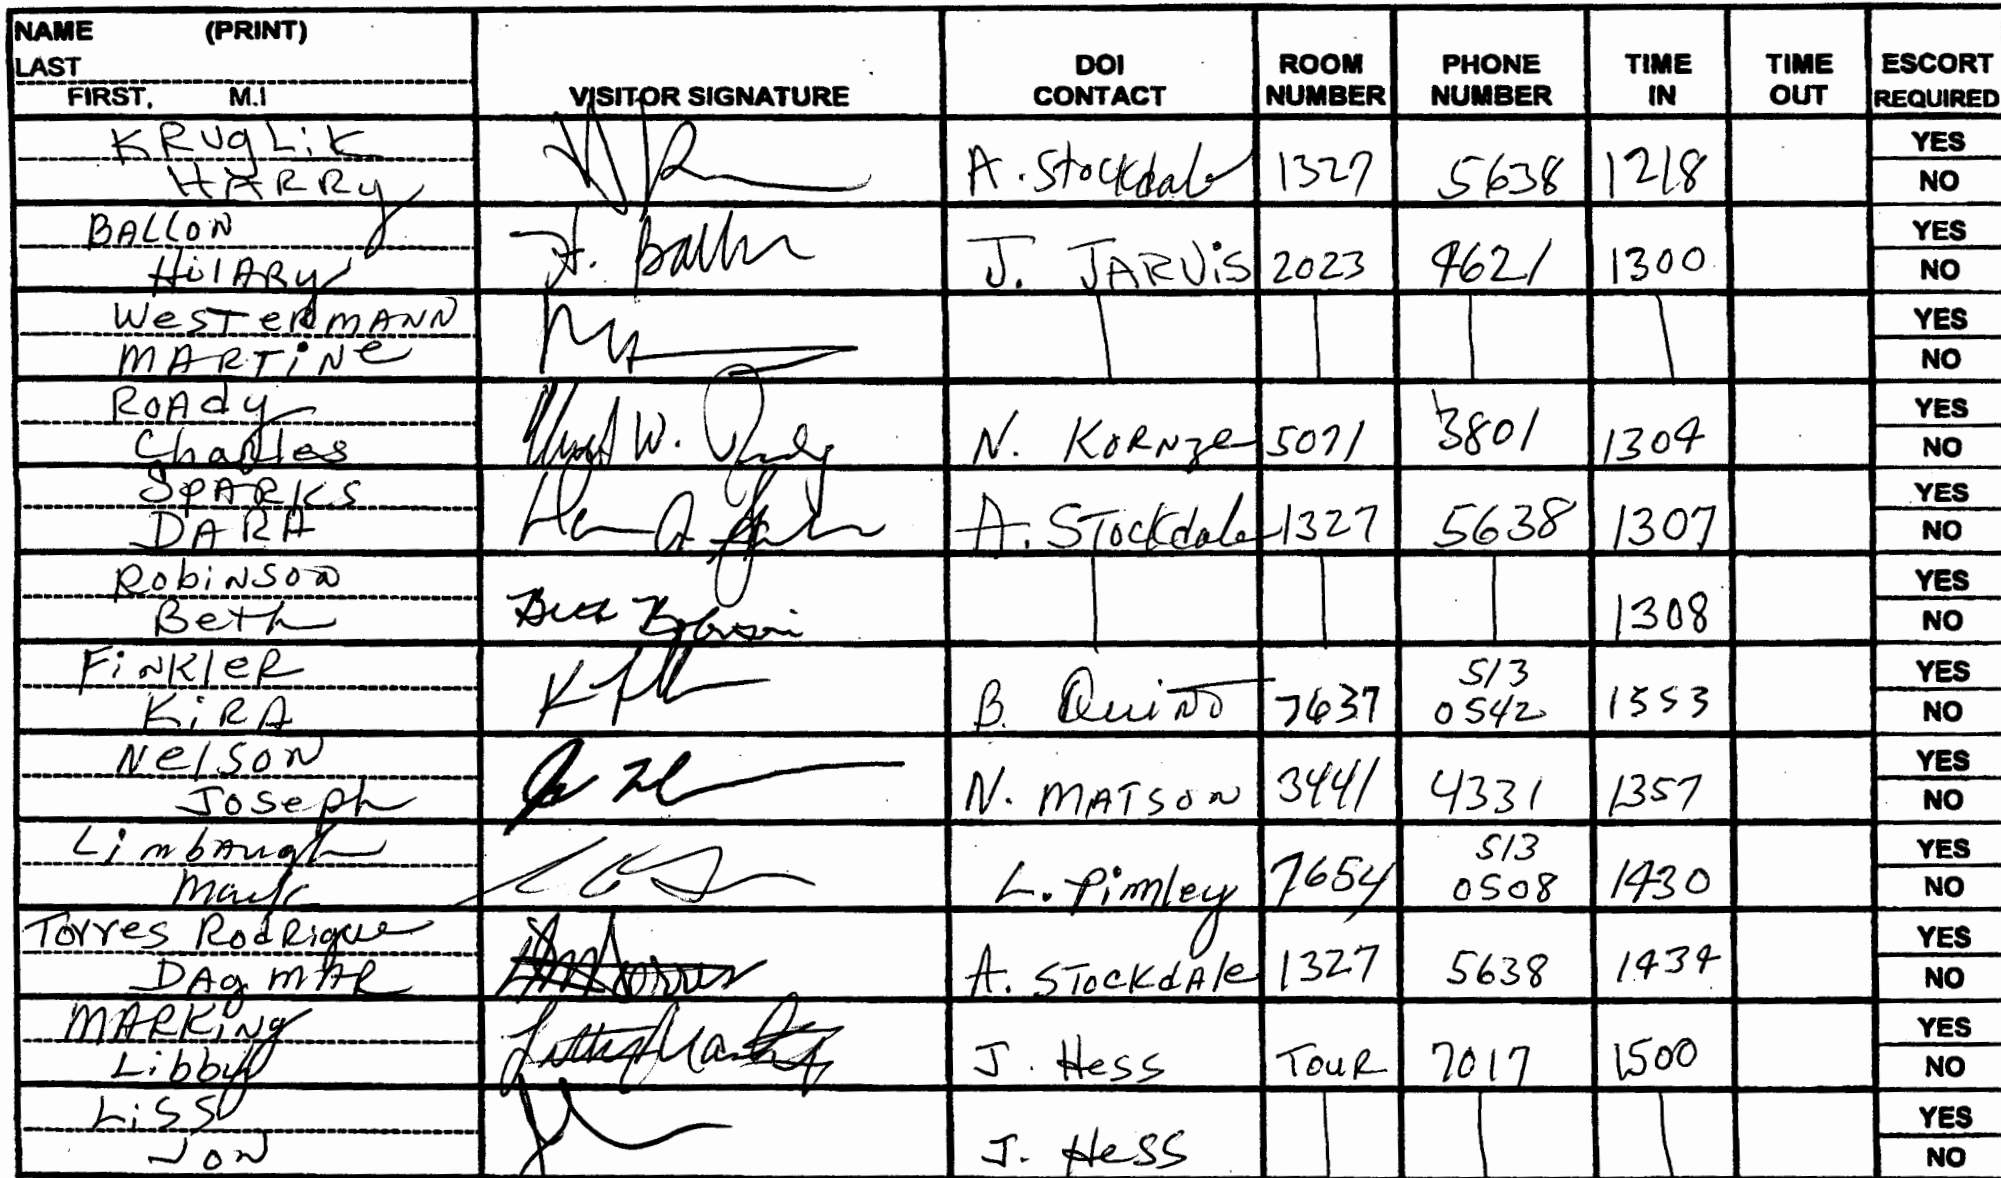 NAME (PRINT)
LAST
FIRST, M.I
VISITOR SIGNATURE
DOI CONTACT
ROOM NUMBER
PHONE NUMBER
TIME IN
TIME OUT
ESCORT REQUIRED
KRUgLiK
HARRy A. Stockdale 1327 5638 1218 YES NO
BALLON
HilARy H. Ballon J. JARViS 2023 4621 1300 YES NO
WesTeRMANN
MARTiNe YES NO
ROAdy
Charles W. N. KORNze 5071 3801 1304 YES NO
SPARKS
DARA A. STockdale 1327 5638 1307 YES NO
RobiNSoN
Beth Beth Robinson 1308 YES NO
FiNKleR
KiRA B. QuiNT 7637 513 0542 1353 YES NO
NelSoN
JoSeph N. MATSoN 3441 4331 1357 YES NO
LimbAugh
Mark L. Pimley 7654 513 0508 1430 YES NO
Torres RodRigue
DAgmAR A. STockdAle 1327 5638 1434 YES NO
MARKiNg
Libby J. Hess TouR 7017 1500 YES NO
LiSS
JoN J. HesS YES NO